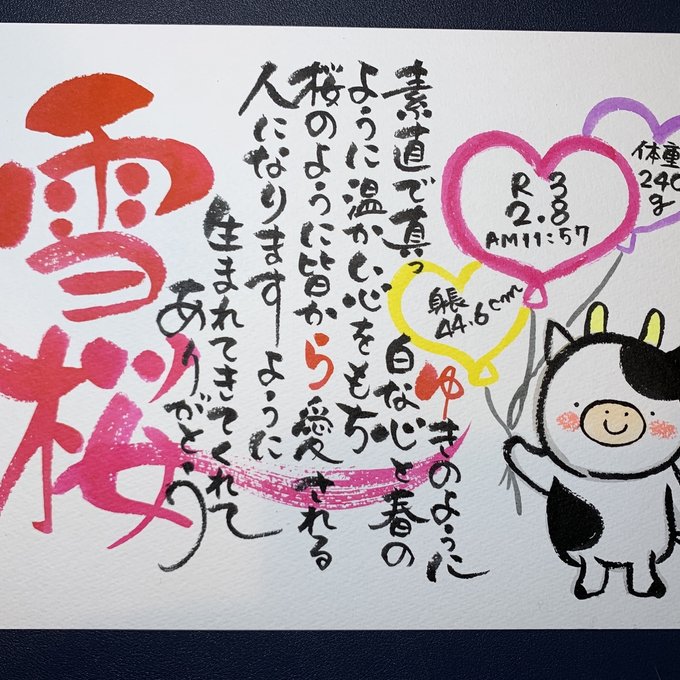 雪桜
体重
240
g
R3
2.8
AM11:57
身長
44.6cm
ゆきのように
素直で真っ白な心と春の
ように温かい心をもち
桜のように皆から愛される
人になりますように
生まれてきてくれて
ありがとう